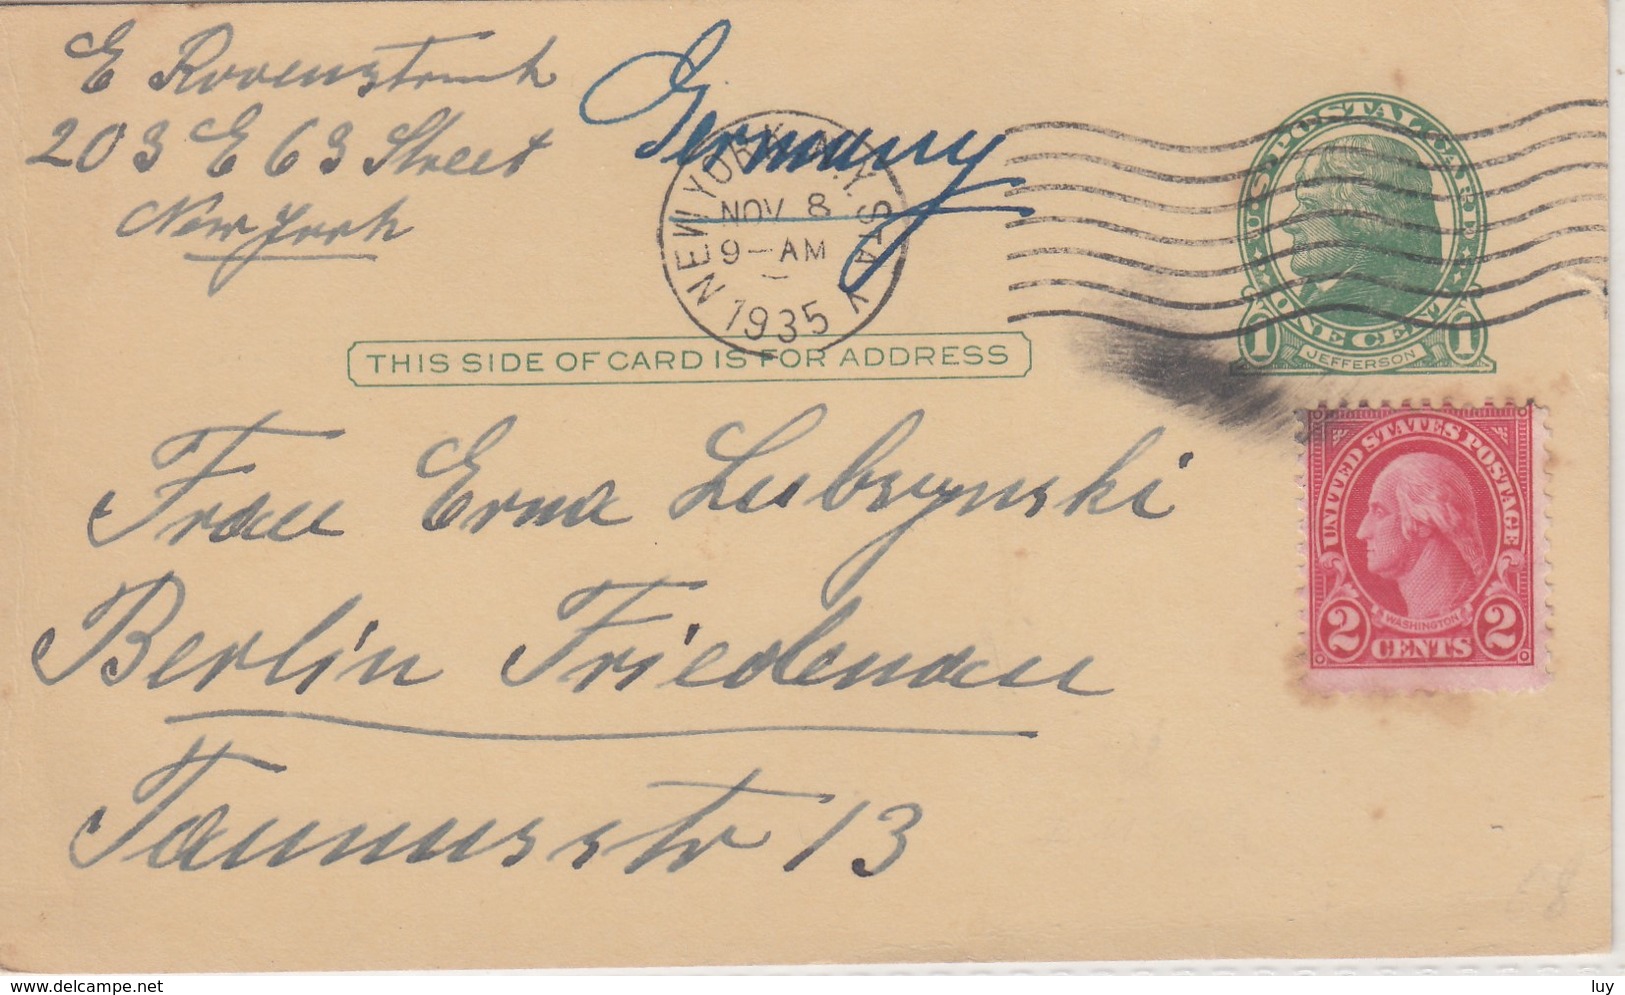 E
203 E 63 Street
New York
Germany
NEW YORK, N.Y. STA Y
NOV 8
9-AM
1935
U.S. POSTAL CARD
1 ONE CENT 1
JEFFERSON
THIS SIDE OF CARD IS FOR ADDRESS
UNITED STATES POSTAGE
WASHINGTON
2 CENTS 2
Frau Erna Lubszynski
Berlin Friedenau
Taunusstr 13
68
delcampe.net
luy